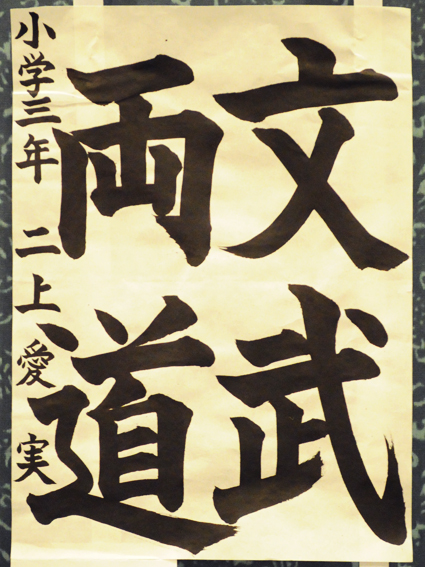 文武
両道
小学三年 二上愛実